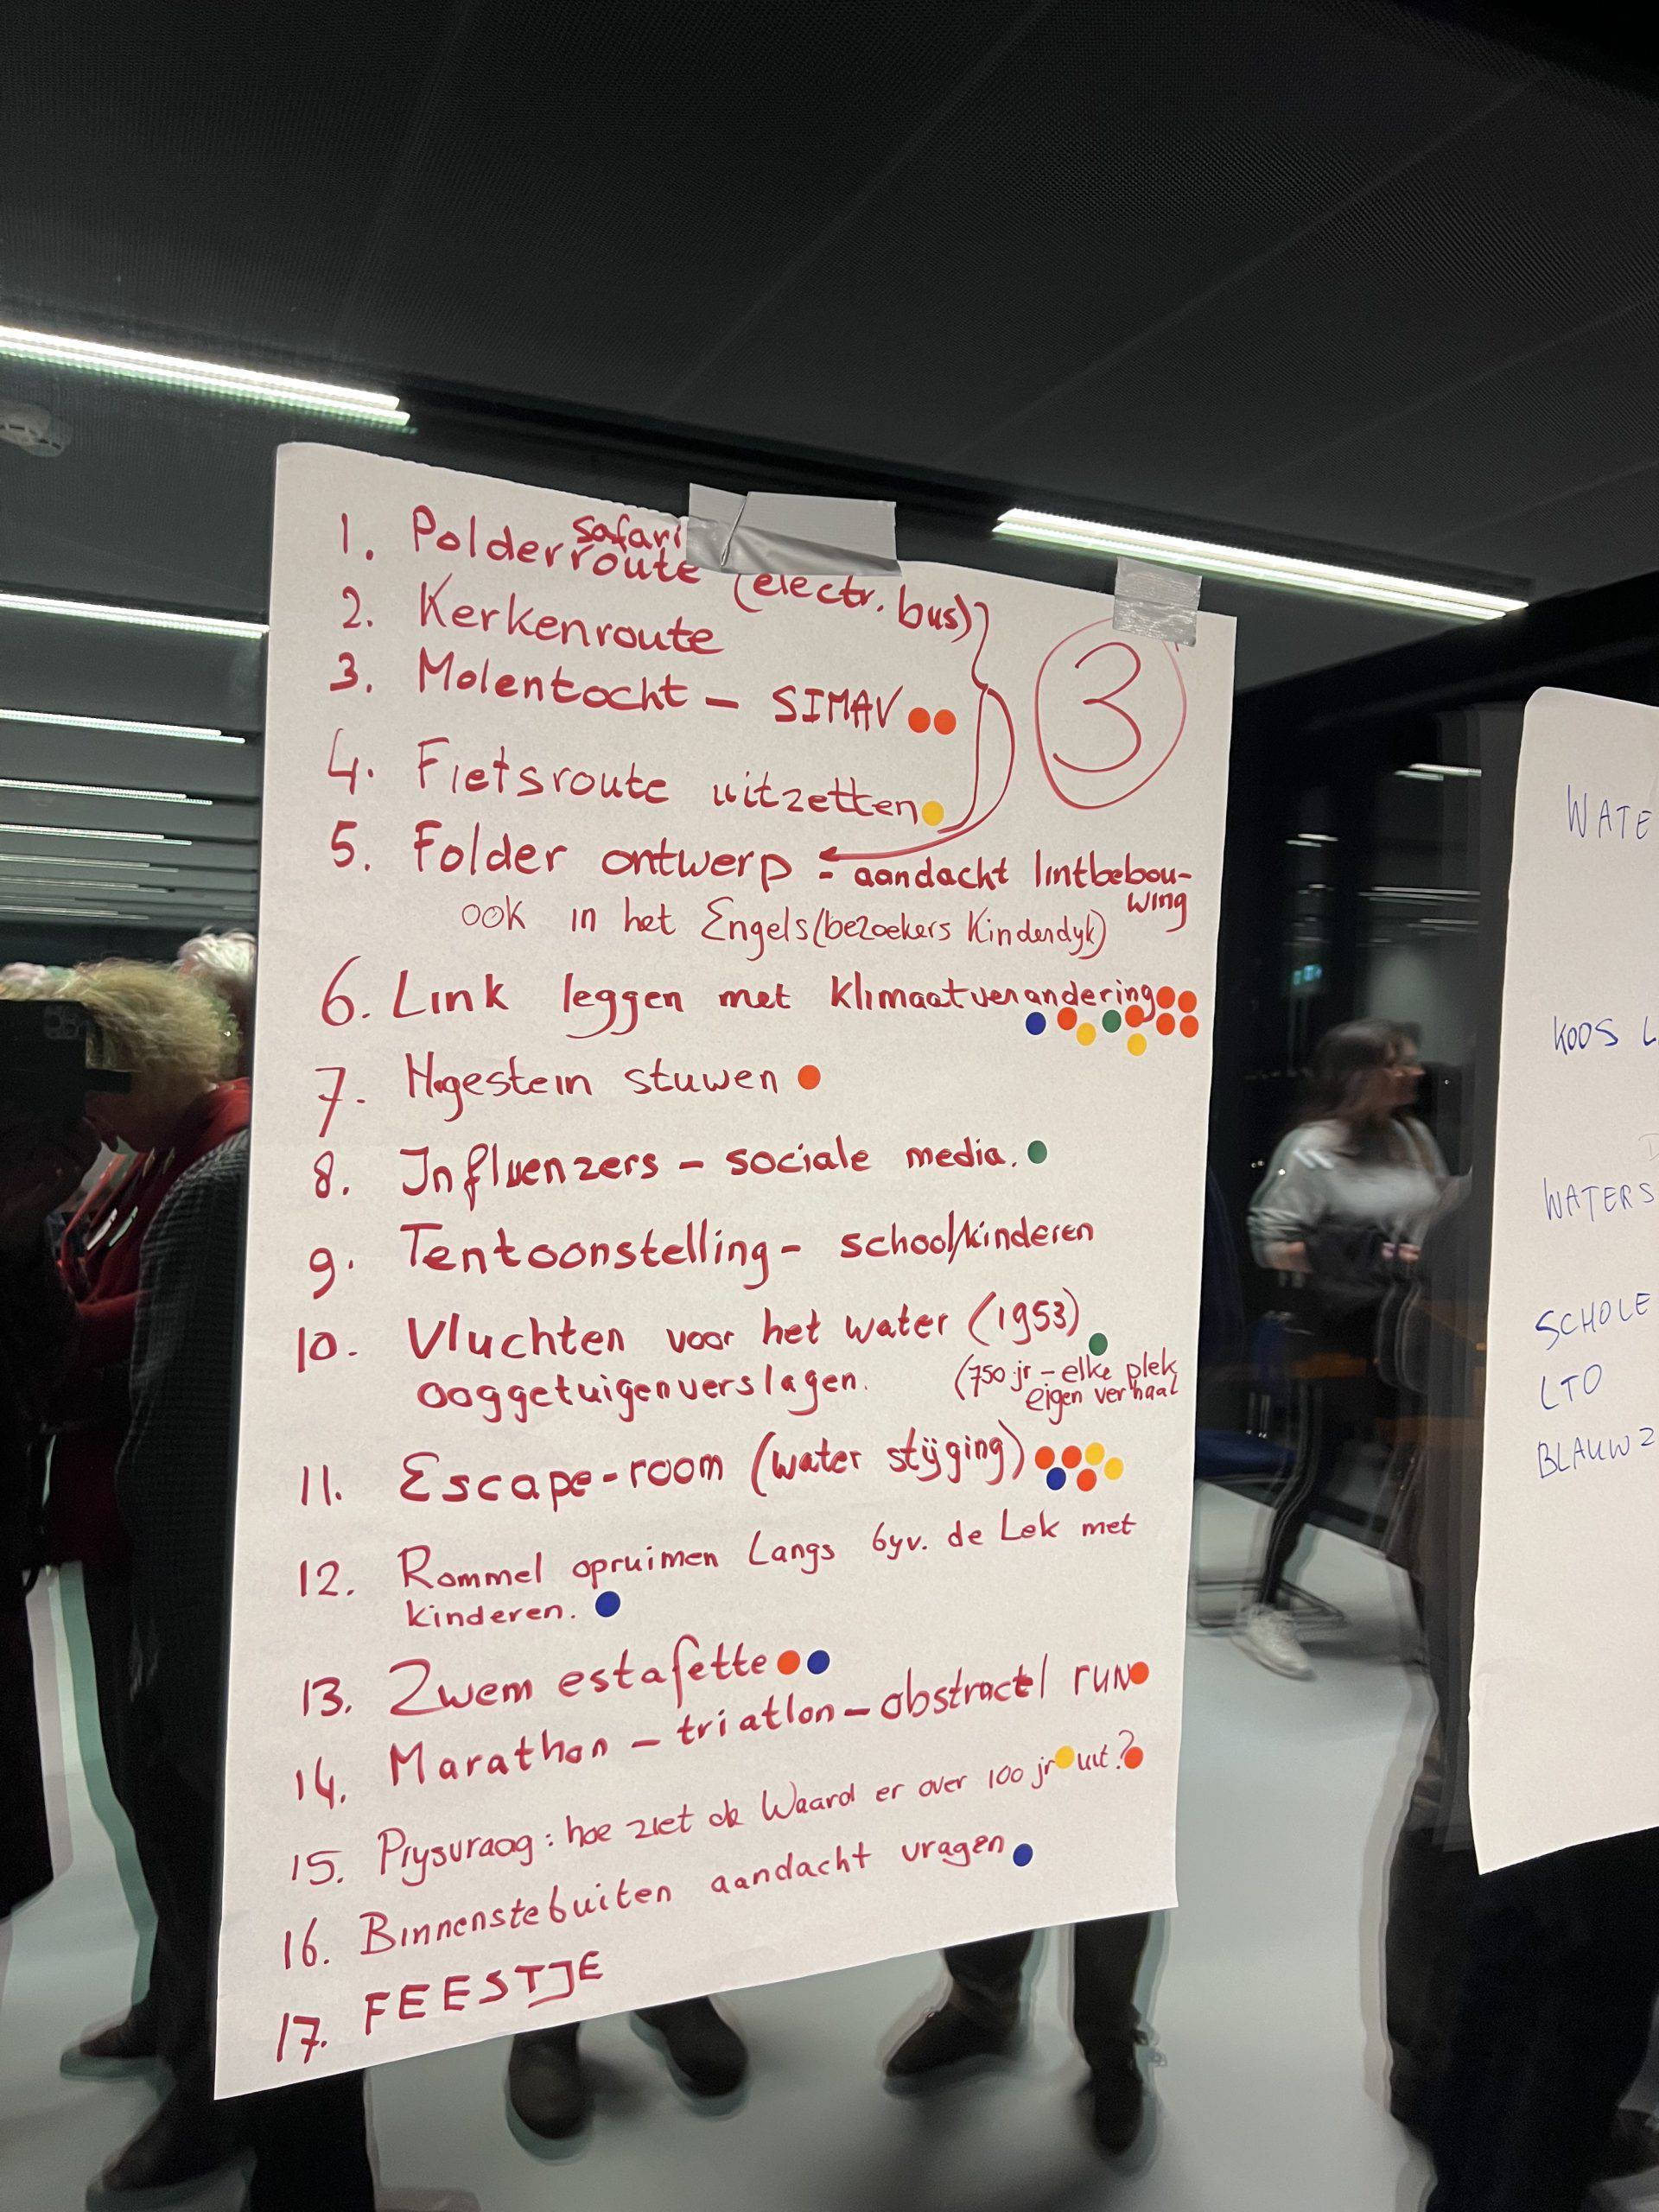 safari
1. Polderroute (electr. bus)
2. Kerkenroute
3. Molentocht - SIMAV
3
4. Fietsroute uitzetten
5. Folder ontwerp - aandacht lintbebou-
wing
ook in het Engels (bezoekers Kinderdyk)
6. Link leggen met klimaatverandering
7. Hogestein stuwen
8. Influenzers - sociale media.
9. Tentoonstelling - school/kinderen
10. Vluchten voor het water (1953)
ooggetuigenverslagen.
(750 jr - elke plek
eigen verhaal
11. Escape-room (water stijging)
12. Rommel opruimen langs byv. de Lek met
kinderen.
13. Zwem estafette
14. Marathon - triatlon - obstractel run
15. Prysvraag: hoe ziet de Waard er over 100 jr uit?
16. Binnenstebuiten aandacht vragen
17. FEESTJE
WATE
KOOS L
WATERS
SCHOLE
LTO
BLAUWZ